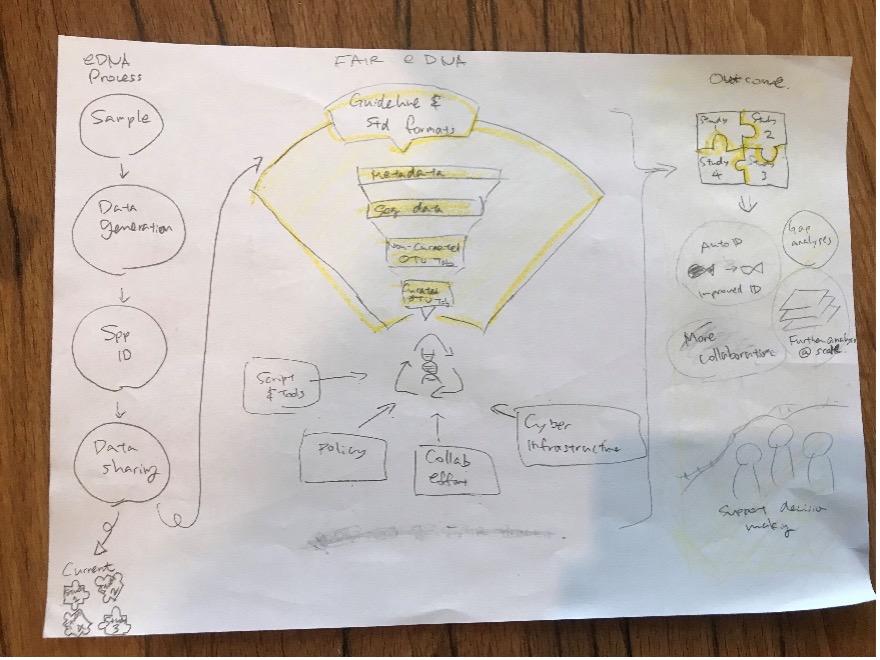 eDNA
Process
Sample
Data
generation
Spp
ID
Data
sharing
Current
3
FAIR eDNA
Guideline &
Std formats
Metadata
Seq data
Non-Curated
OTU Tab
Curated
OTU Tab
Script
& Tools
Policy
Collab
effort
Cyber
Infrastructure
Outcome.
Study
Study
2
Study
4
Study
3
Auto ID
improved ID
Gap
analyses
More
collaboration
Further analyses
@ scale.
Support decision
making